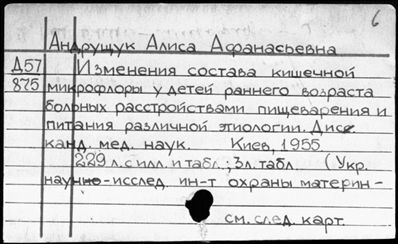 6
Андрущук Алиса Афанасьевна
Д57 Изменения состава кишечной
875 микрофлоры у детей раннего возраста
больных расстройствами пищеварения и
питания различной этиологии. Дисс.
канд. мед. наук. Киев, 1955.
229 л. с илл. и табл.; 3 л. табл. (Укр.
научно-исслед. ин-т охраны материн-
см. след. карт.